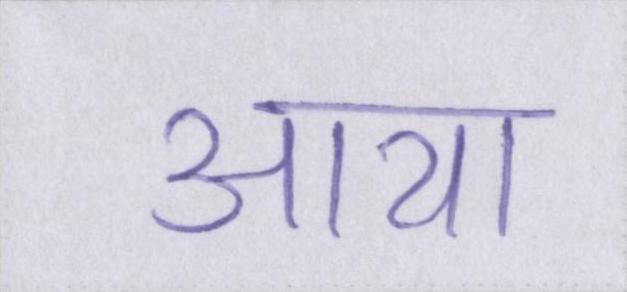 आया